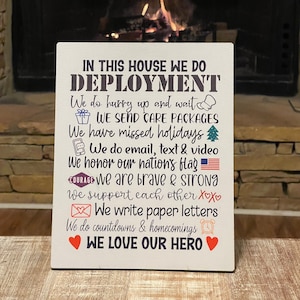 IN THIS HOUSE WE DO
DEPLOYMENT
We do hurry up and wait
WE SEND CARE PACKAGES
We have missed holidays
We do email, text & video
We honor our nation's flag
COURAGE we are brave & strong
we support each other XOXO
We write paper letters
We do countdowns & homecomings
WE LOVE OUR HERO